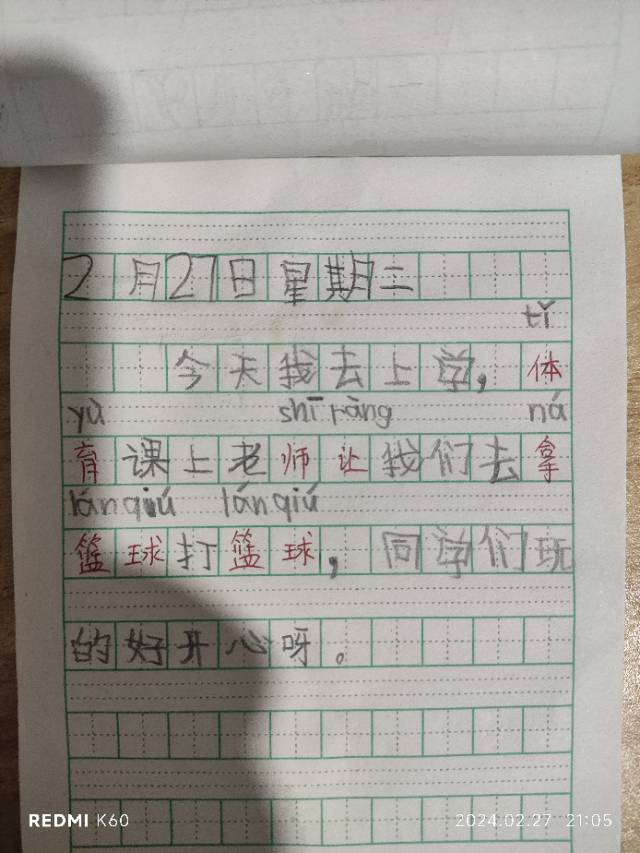 2月27日星期二
tǐ
今天我去上学，体
yù shī ràng ná
育课上老师让我们去拿
lánqiú lánqiú
篮球打篮球，同学们玩
的好开心呀。
REDMI K60
2024.02.27 21:05